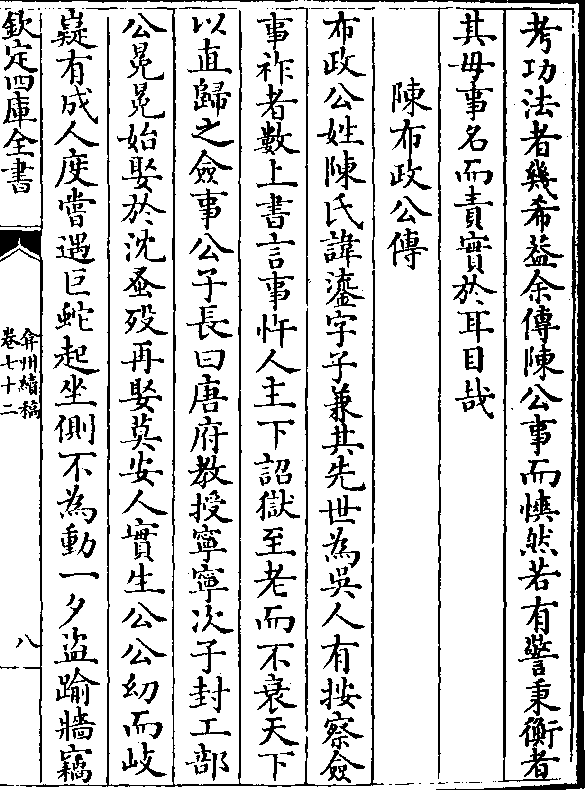 考功法者幾希益余傳陳公事而愯然若有警秉衡者
其毋事名而責實於耳目哉
陳布政公傳
布政公姓陳氏諱鎏字子兼其先世為吳人有按察僉
事祚者數上書言事忤人主下詔獄至老而不衰天下
以直歸之僉事公子長曰唐府教授寧寧次子封工部
公冕冕始娶於沈蚤歿再娶莫安人實生公公幼而岐
嶷有成人度嘗遇巨蛇起坐側不為動一夕盜踰牆竊
欽定四庫全書
弇州續稿
卷七十二
八